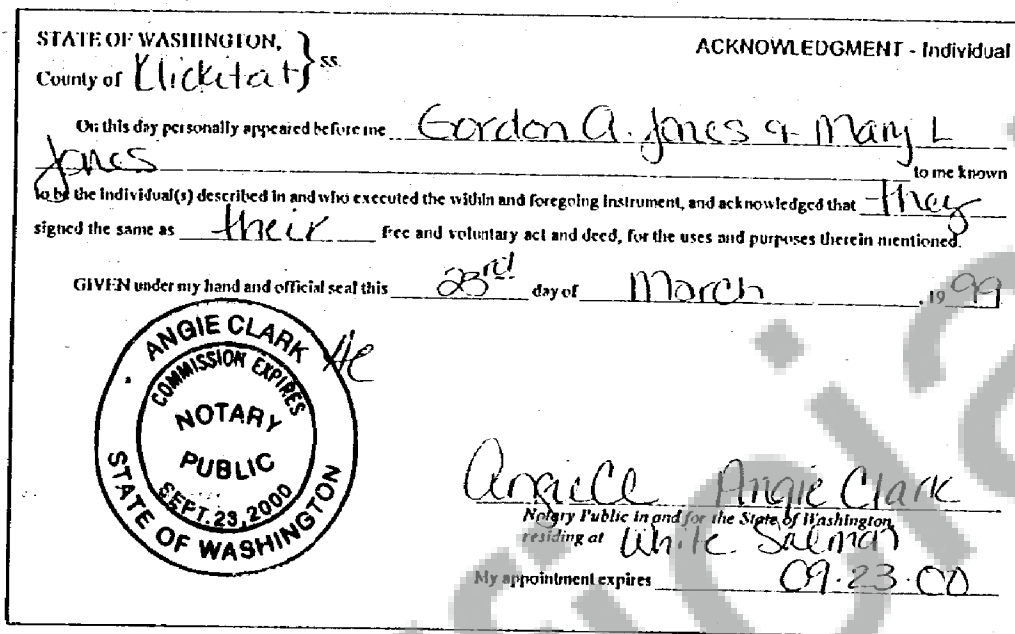 STATE OF WASHINGTON, } ss. ACKNOWLEDGMENT - Individual
County of Klickitat
On this day personally appeared before me Gordon A. Jones & Mary L
Jones to me known
to be the individual(s) described in and who executed the within and foregoing instrument, and acknowledged that they
signed the same as their free and voluntary act and deed, for the uses and purposes therein mentioned.
GIVEN under my hand and official seal this 23rd day of March , 19 99
ANGIE CLARK
COMMISSION EXPIRES
NOTARY
PUBLIC
SEPT. 23, 2000
STATE OF WASHINGTON
Angie Cl Angie Clark
Notary Public in and for the State of Washington,
residing at White Salmon
My appointment expires 09.23.00